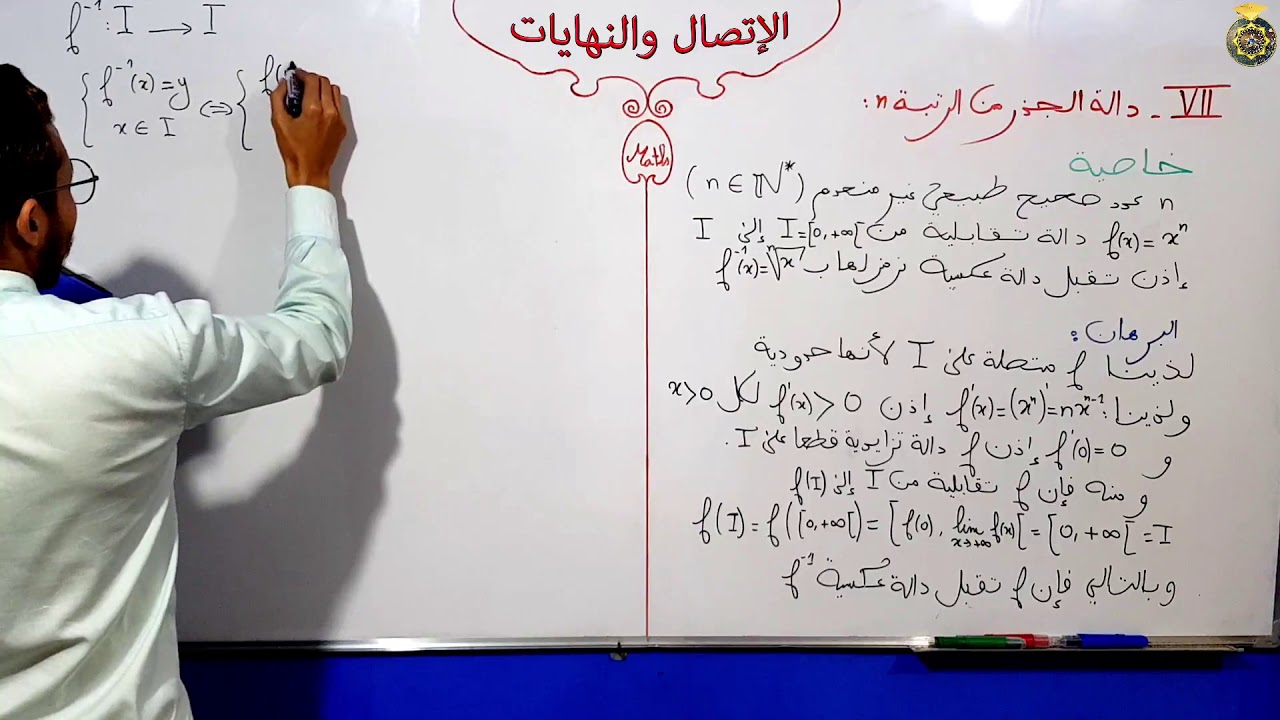 الإتصال والنهايات
Maths
VII - دالة الجذر من الرتبة n:
خاصية
n عدد صحيح طبيعي غير منعدم (n ∈ ℕ*)
f(x) = xⁿ دالة تقابلية من I=[0,+∞[ إلى I
إذن تقبل دالة عكسية نرمز لها ب f⁻¹(x)=ⁿ√x
البرهان:
لدينا f متصلة على I لأنها حدودية
ولدينا: f'(x)=(xⁿ)'=nxⁿ⁻¹ إذن f'(x)>0 لكل x>0
و f'(0)=0 إذن f دالة تزايدية قطعا على I.
ومنه فإن f تقابلية من I إلى f(I)
f(I)=f([0,+∞[)=[f(0), lim x→+∞ f(x)[=[0,+∞[=I
وبالتالي فإن f تقبل دالة عكسية f⁻¹
f⁻¹: I → I
{ f⁻¹(x)=y ⇔ { f(
x ∈ I